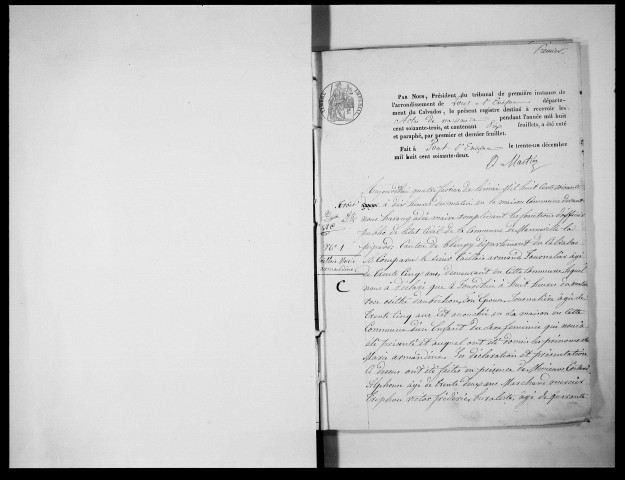 Premier.
PAR NOUS, Président du tribunal de première instance de
l'arrondissement de Pont-l'Evêque départe-
ment du Calvados, le présent registre destiné à recevoir les
Actes de naissance pendant l'année mil huit
cent soixante-trois, et contenant Six feuillets, a été coté
et paraphé, par premier et dernier feuillet.
Fait à Pont-l'Evêque le trente-un décembre
mil huit cent soixante-deux.
Aujourd'hui quatre février mil huit cent soixante
trois à dix heures du matin en la maison Commune devant
nous maire remplissant les fonctions d'officier
public de l'état Civil de la Commune de
Canton de Blangy département du Calvados
N° 1
Marie
armandine
a Comparu le sieur armand Journalier âgé
de trente Cinq ans, demeurant en Cette Commune lequel
nous a déclaré que à huit heures
C
son Epouse, Journalière âgée de
trente Cinq ans est accouchée en Sa maison en Cette
Commune d'un Enfant du sexe feminin qui nous a
été présenté et auquel ont été donnés les prénoms de
Marie armandine. Les déclaration et présentation
Ci dessus ont été faites en présence de
âgé de trente deux ans Marchand mercier
victor frédéric, buraliste, âgé de quarante